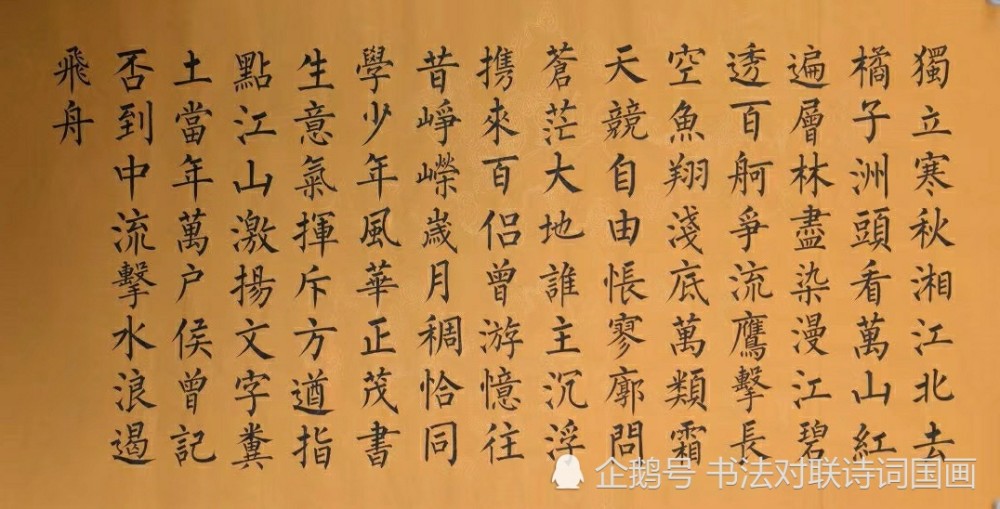 獨立寒秋湘江北去
橘子洲頭看萬山紅
遍層林盡染漫江碧
透百舸爭流鷹擊長
空魚翔淺底萬類霜
天競自由悵寥廓問
蒼茫大地誰主沉浮
携來百侣曾游憶往
昔崢嶸崴月稠恰同
學少年風華正茂書
生意氣揮斥方遒指
點江山激揚文字糞
土當年萬户侯曾記
否到中流擊水浪遏
飛舟
企鹅号 书法对联诗词国画